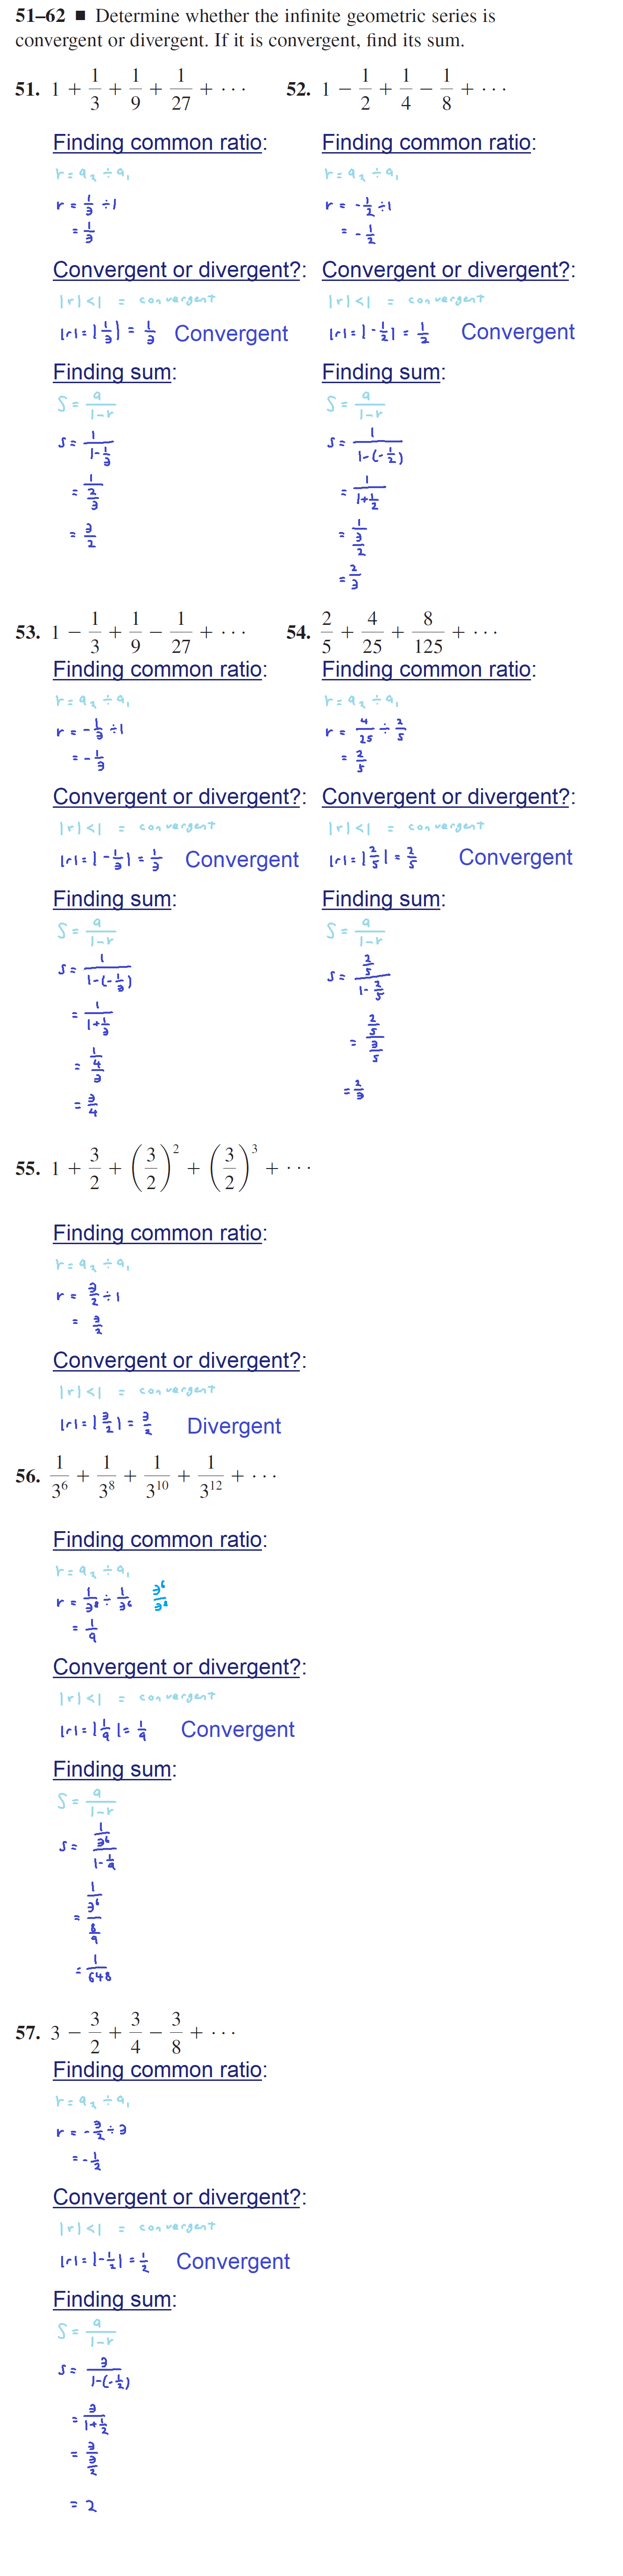 51–62 ■ Determine whether the infinite geometric series is
convergent or divergent. If it is convergent, find its sum.
51. 1 + 1/3 + 1/9 + 1/27 + ···
52. 1 − 1/2 + 1/4 − 1/8 + ···
Finding common ratio:
r = a₂ ÷ a₁
r = 1/3 ÷ 1
= 1/3
Convergent or divergent?:
|r| < 1 = convergent
|r| = |1/3| = 1/3 Convergent
Finding sum:
S = a/(1-r)
S = 1/(1-1/3)
= 1/(2/3)
= 3/2
Finding common ratio:
r = a₂ ÷ a₁
r = -1/2 ÷ 1
= -1/2
Convergent or divergent?:
|r| < 1 = convergent
|r| = |-1/2| = 1/2 Convergent
Finding sum:
S = a/(1-r)
S = 1/(1-(-1/2))
= 1/(1+1/2)
= 1/(3/2)
= 2/3
53. 1 − 1/3 + 1/9 − 1/27 + ···
54. 2/5 + 4/25 + 8/125 + ···
Finding common ratio:
r = a₂ ÷ a₁
r = -1/3 ÷ 1
= -1/3
Convergent or divergent?:
|r| < 1 = convergent
|r| = |-1/3| = 1/3 Convergent
Finding sum:
S = a/(1-r)
S = 1/(1-(-1/3))
= 1/(1+1/3)
= 1/(4/3)
= 3/4
Finding common ratio:
r = a₂ ÷ a₁
r = 4/25 ÷ 2/5
= 2/5
Convergent or divergent?:
|r| < 1 = convergent
|r| = |2/5| = 2/5 Convergent
Finding sum:
S = a/(1-r)
S = (2/5)/(1-2/5)
= (2/5)/(3/5)
= 2/3
55. 1 + 3/2 + (3/2)² + (3/2)³ + ···
Finding common ratio:
r = a₂ ÷ a₁
r = 3/2 ÷ 1
= 3/2
Convergent or divergent?:
|r| < 1 = convergent
|r| = |3/2| = 3/2 Divergent
56. 1/3⁶ + 1/3⁸ + 1/3¹⁰ + 1/3¹² + ···
Finding common ratio:
r = a₂ ÷ a₁
r = 1/3⁸ ÷ 1/3⁶ 3⁶/3⁸
= 1/9
Convergent or divergent?:
|r| < 1 = convergent
|r| = |1/9| = 1/9 Convergent
Finding sum:
S = a/(1-r)
S = (1/3⁶)/(1-1/9)
= (1/3⁶)/(8/9)
= 1/648
57. 3 − 3/2 + 3/4 − 3/8 + ···
Finding common ratio:
r = a₂ ÷ a₁
r = -3/2 ÷ 3
= -1/2
Convergent or divergent?:
|r| < 1 = convergent
|r| = |-1/2| = 1/2 Convergent
Finding sum:
S = a/(1-r)
S = 3/(1-(-1/2))
= 3/(1+1/2)
= 3/(3/2)
= 2